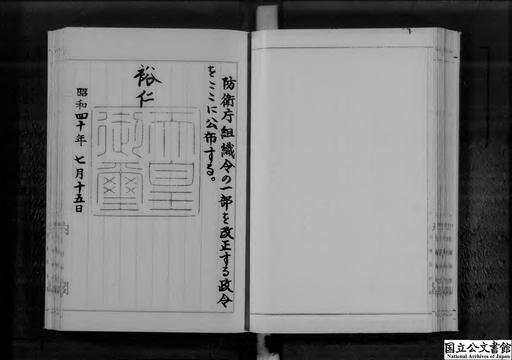 防衛庁組織令の一部を改正する政令
をここに公布する。
裕仁
天皇
御璽
昭和四十年七月十五日
国立公文書館
National Archives of Japan